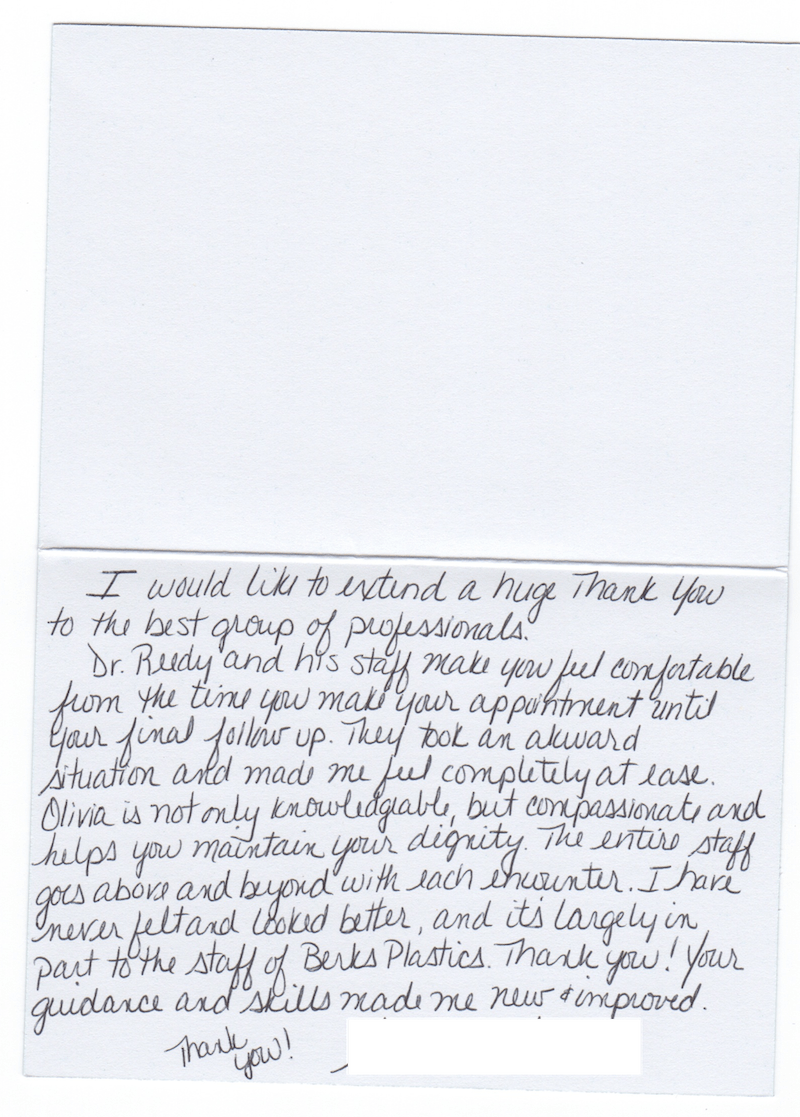 I would like to extend a huge Thank You
to the best group of professionals.
Dr. Reedy and his staff make you feel comfortable
from the time you make your appointment until
your final follow up. They took an akward
situation and made me feel completely at ease.
Olivia is not only knowledgiable, but compassionate and
helps you maintain your dignity. The entire staff
goes above and beyond with each encounter. I have
never felt and looked better, and it's largely in
part to the staff of Berks Plastics. Thank you! Your
guidance and skills made me new & improved.
Thank
you!